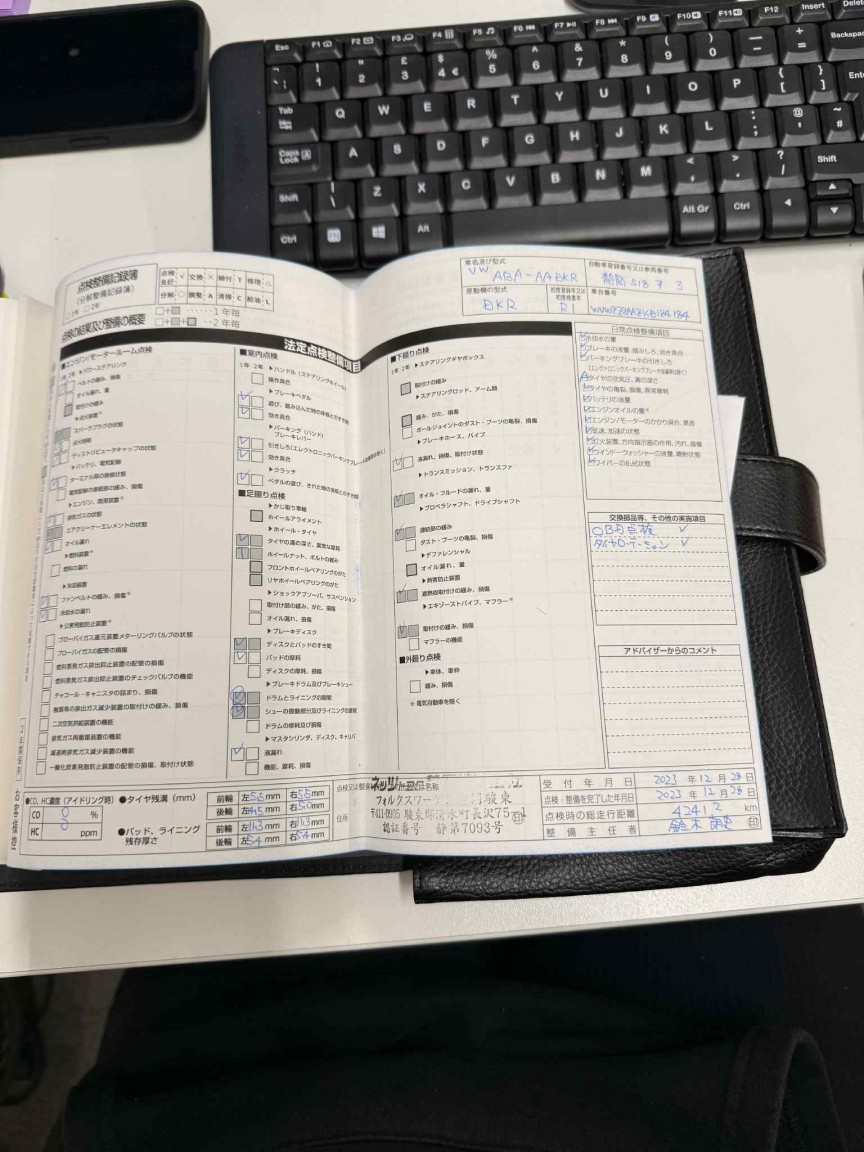 Esc F1 F2 F3 F4 F5 F6 F7 F8 F9 F10 F11 F12 Insert
! 1 " 2 £ 3 $ 4 € % 5 ^ 6 & 7 * 8 ( 9 ) 0 — - + = Backspa
Tab Q W E R T Y U I O P { [ } ] Ente
Caps Lock A A S D F G H J K L : ; @ ' ~ #
Shift | \ Z X C V B N M < , > . ? / Shift
Ctrl Alt Alt Gr Ctrl
点検整備記録簿
(分解整備記録簿)
□1年 □2年
点検良好 交換 × 締付 T 修理 △
分解 ○ 調整 A 清掃 C 給油 L
1年毎
2年毎
点検の結果及び整備の概要
法定点検整備項目
車名及び型式
VW ABA-AADKR
原動機の型式
DKR
初度登録年又は初度検査年
R1
自動車登録番号又は車両番号
車台番号
■エンジン/モータールーム点検
1年 2年
▶パワーステアリング
ベルトの緩み、損傷
オイル漏れ、量
取付けの緩み
▶点火装置※
スパークプラグの状態
点火時期
ディストリビュータキャップの状態
▶バッテリ、電気配線
ターミナル部の接続状態
電気配線の接続部の緩み、損傷
▶エンジン、潤滑装置※
排気ガスの状態
エアクリーナーエレメントの状態
オイル漏れ
▶燃料装置※
燃料の漏れ
▶冷却装置
ファンベルトの緩み、損傷※
冷却水の漏れ
▶公害発散防止装置※
ブローバイガス還元装置メターリングバルブの状態
ブローバイガスの配管の損傷
燃料蒸発ガス排出抑止装置の配管の損傷
燃料蒸発ガス排出抑止装置のチェックバルブの機能
チャコール・キャニスタの詰まり、損傷
触媒等の排出ガス減少装置の取付けの緩み、損傷
二次空気供給装置の機能
排気ガス再循環装置の機能
減速時排気ガス減少装置の機能
一酸化炭素発散防止装置の配管の損傷、取付け状態
■室内点検
1年 2年
▶ハンドル(ステアリングホイール)
操作具合
▶ブレーキペダル
遊び、踏み込んだ時の床板とのすき間
効き具合
▶パーキング(ハンド)
ブレーキレバー
引きしろ(エレクトロニックパーキングブレーキ
効き具合
▶クラッチ
ペダルの遊び、きれた時の床板とのすき間
■足廻り点検
▶かじ取り車輪
ホイールアライメント
▶ホイール・タイヤ
タイヤの溝の深さ、異常な摩耗
ホイールナット、ボルトの緩み
フロントホイールベアリングのがた
リヤホイールベアリングのがた
▶ショックアブソーバ、サスペンション
取付け部の緩み、がた、損傷
オイル漏れ、損傷
▶ブレーキディスク
ディスクとパッドのすき間
パッドの摩耗
ディスクの摩耗、損傷
▶ブレーキドラム及びブレーキシュー
ドラムとライニングの隙間
シューの摺動部分及びライニングの摩耗
ドラムの摩耗及び損傷
▶マスタシリンダ、ディスク、キャリパ
液漏れ
機能、摩耗、損傷
■下廻り点検
1年 2年
▶ステアリングギヤボックス
取付けの緩み
▶ステアリングロッド、アーム類
緩み、がた、損傷
ボールジョイントのダスト・ブーツの亀裂、損傷
▶ブレーキホース、パイプ
液漏れ、損傷、取付け状態
▶トランスミッション、トランスファ
オイル・フルードの漏れ、量
▶プロペラシャフト、ドライブシャフト
連結部の緩み
ダスト・ブーツの亀裂、損傷
▶デファレンシャル
オイル漏れ、量
▶熱害防止装置
遮熱板取付けの緩み、損傷
▶エキゾーストパイプ、マフラー※
取付けの緩み、損傷
マフラーの機能
■外廻り点検
▶車体、車枠
緩み、損傷
※電気自動車を除く
日常点検整備項目
冷却水の量
ブレーキの液量、踏みしろ、効き具合
パーキングブレーキの引きしろ
(エレクトロニックパーキングブレーキ装備車は除く)
タイヤの空気圧、溝の深さ
タイヤの亀裂、損傷、異常摩耗
バッテリの液量
エンジンオイルの量※
エンジン/モーターのかかり具合、異音
低速、加速の状態
灯火装置、方向指示器の作用、汚れ、損傷
ウインドーウォッシャーの液量、噴射状態
ワイパーの払拭状態
交換部品等、その他の実施項目
OBD点検 ✓
タイヤローテーション ✓
アドバイザーからのコメント
●CO、HC濃度(アイドリング時)
CO 0 %
HC 0 ppm
●タイヤ残溝(mm)
前輪 左5.5mm 右5.5mm
後輪
●パッド、ライニング残存厚さ
前輪
後輪 左5.4mm 右5.4mm
フォルクスワーゲン 駿東
〒411-0905 駿東郡清水町長沢75
認証番号 静第7093号
住所
受付年月日 2023年12月28日
点検・整備を完了した年月日 2023年12月28日
点検時の総走行距離 42412 km
整備主任者 鈴木